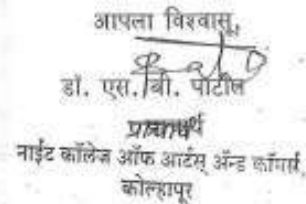 आपला विश्वासू,
डॉ. एस. बी. पाटील
प्राचार्य
नाईट कॉलेज ऑफ आर्टस् ॲन्ड कॉमर्स,
कोल्हापूर